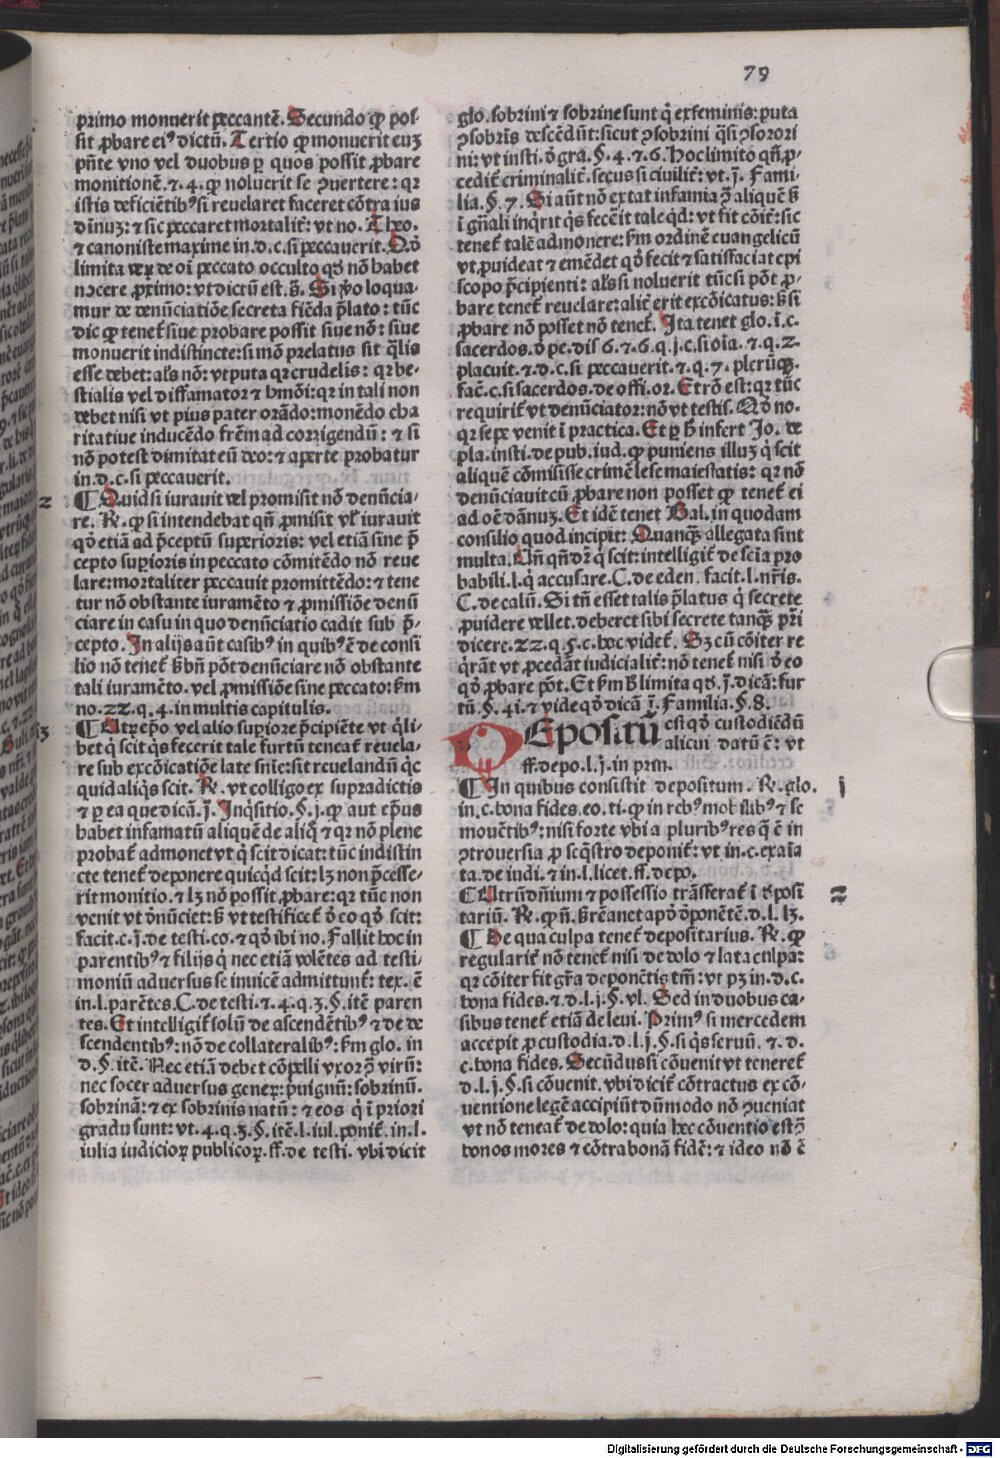 79
primo monuerit peccantē. Secundo ꝙ pos-
sit ꝓbare eiꝰ dictū. Tertio ꝙ monuerit euꝫ
pn̄te vno vel duobus ꝑ quos possit ꝓbare
monitionē. ⁊. 4. ꝙ noluerit se ꝯuertere: qꝛ
istis deficiētibꝰ si reuelaret faceret cōtra ius
diuinuꝫ: ⁊ sic peccaret mortalit̄: vt no.
⁊ canoniste maxime in. d. c. si peccauerit. Qđ
limita veꝝ de oī peccato occulto qđ nō habet
nocere ꝓximo: vt dictū est. s̄. Si ṽo loqua-
mur de denūciatiōe secreta fiēda p̄lato: tūc
dic ꝙ tenet̄ siue probare possit siue nō: siue
monuerit indistincte: si mō prelatus sit q̄lis
esse debet: al̄s nō: vt puta qꝛ crudelis: qꝛ be-
stialis vel diffamator ⁊ hmōi: qꝛ in tali non
debet nisi vt pius pater orādo: monēdo cha
ritatiue inducēdo frēm ad corrigendū: ⁊ si
nō potest dimitat eū deo: ⁊ aperte probatur
in. d. c. si peccauerit.
¶ Quid si iurauit vel promisit nō denūcia-
re. R. ꝙ si intendebat qn̄ ꝓmisit vl̄ iurauit
qđ etiā ad p̄ceptū superioris: vel etiā sine p̄
cepto suꝑioris in peccato cōmitēdo nō reue
lare: mortaliter peccauit promittēdo: ⁊ tene
tur nō obstante iuramēto ⁊ ꝓmissiōe denū
ciare in casu in quo denūciatio cadit sub p̄-
cepto. In alijs aūt casibꝰ in quibꝰ ē de consi
lio nō tenet̄ s̄ bn̄ pōt denūciare nō obstante
tali iuramēto. vel ꝓmissiōe sine peccato: s̄m
no. 22. q. 4. in multis capitulis.
¶ Utꝝ ep̄o. vel alio suꝑiore p̄cipiēte vt q̄li-
bet q̇ scit q̇s fecerit tale furtū teneat̄ reuela-
re sub excōicatiōe late snīe: sit reuelandū qc
quid aliq̇s scit. R. vt colligo ex supradictis
⁊ ꝑ ea que dicā. j̄. Inq̇sitio. §. j. ꝙ aut ep̄us
habet infamatū aliquē de aliq̄ ⁊ qꝛ nō plene
probat̄ admonet vt q̇ scit dicat: tūc indistin
cte tenet̄ deponere quicq̇d scit: lꝫ non p̄cesse-
rit monitio. ⁊ lꝫ nō possit ꝓbare: qꝛ tūc non
venit vt dn̄uciet: s̄ vt testificet̄ d̄ eo qđ scit:
facit. c. j̄. de testi. co. ⁊ qđ ibi no. Fallit hoc in
parentibꝰ ⁊ filijs q̄ nec etiā volētes ad testi-
moniū aduersus se inuicē admittunt̄: tex. ē
in. l. parētes. C. de testi. ⁊. 4. q. 3. §. itē paren
tes. Et intelligit̄ solū de ascendētibꝰ ⁊ de de
scendentibꝰ: nō de collateralibꝰ: s̄m glo. in
d. §. itē. Nec etiā debet cōpelli vxor ꝯ̄ virū:
nec socer aduersus geneꝝ: p̄uignū: sobrinū.
sobrinā: ⁊ ex sobrinis natū: ⁊ eos q̄ ī priori
gradu sunt: vt. 4. q. 3. §. itē. l. iul. ponit̄. in. l.
iulia iudicioꝝ publicoꝝ. ff. de testi. vbi dicit
glo. sobrini ⁊ sobrine sunt q̇ ex feminis: puta
ꝯsobris descēdūt: sicut ꝯsobrini q̄si ꝯsorori
ni: vt insti. d̄ gra. §. 4. ⁊. 6. Hoc limito qn̄ ꝓ-
cedit̄ criminalit̄. secus si ciuilit̄: vt. j̄. Fami-
lia. §. 7. Si aūt nō extat infamia ꝯ̄ aliquē s̄
ī gn̄ali inq̇rit q̇s fecēit tale qđ: vt fit cōit̄: sic
tenet̄ talē admonere: s̄m ordinē euangelicū
vt ꝓuideat ⁊ emēdet qđ fecit ⁊ satisfaciat epi
scopo p̄cipienti: al̄s si noluerit tūc si pōt ꝓ-
bare tenet̄ reuelare: alit̄ erit excōicatus: s̄ si
ꝓbare nō posset nō tenet̄. Ita tenet glo. ī. c.
sacerdos. d̄ pe. dis 6. ⁊. 6. q. j. c. si oīa. ⁊. q. 2.
placuit. ⁊. d. c. si peccauerit. ⁊. q. 7. pleꝛūqꝫ.
fac̄. c. si sacerdos. de offi. or. Et rō est: qꝛ tūc
requirit̄ vt denūciator: nō vt testis. Qđ no.
qꝛ sepe venit ī practica. Et ꝑ h̄ infert Jo. de
pla. insti. de pub. iud. ꝙ puniens illuꝫ q̇ scit
aliquē cōmisisse crimē lese maiestatis: qꝛ nō
denūciauit cū ꝓbare non posset ꝙ tenet̄ ei
ad oē dānuꝫ. Et idē tenet Bal. in quodam
consilio quod incipit: Quanqꝫ allegata sint
multa. Un̄ qn̄ dr̄ q̇ scit: intelligit̄ de scīa pro
babili. l. q̇ accusare. C. de eden. facit. l. nr̄is.
C. de calū. Si tn̄ esset talis p̄latus q̇ secrete
ꝓuidere vellet. deberet sibi secrete tanqꝫ pr̄i
dicere. 22. q. 5. c. hoc videt̄. Sꝫ cū cōiter re
q̇rāt vt ꝓcedāt iudicialit̄: nō tenet̄ nisi d̄ eo
qđ ꝓbare pōt. Et s̄m h̄ limita qđ. j̄. dicā: fur
tū. §. 41. ⁊ vide qđ dicā j̄. Familia. §. 8.
DEpositū est qđ custodiēdū
alicui datū ē: vt
ff. depo. l. j. in prin.
¶ In quibus consistit depositum. R. glo.
in. c. bona fides. eo. ti. ꝙ in rebꝰ mobilibꝰ ⁊ se
mouētibꝰ: nisi forte vbi a pluribꝰ res q̄ ē in
ꝯtrouersia ꝓ seq̄stro deponit̄: vt in. c. exaīa
ta. de iudi. ⁊ in. l. licet. ff. depo.
¶ Utrū dn̄ium ⁊ possessio trāsferat̄ ī deposi
tariū. R. ꝙ n̄. s̄ remanet apđ dꝓonētē. d. l. lꝫ.
¶ De qua culpa tenet̄ depositarius. R. ꝙ
regularit̄ nō tenet̄ nisi de dolo ⁊ lata culpa:
qꝛ cōiter fit gr̄a deponētis tm̄: vt pꝫ in. d. c.
bona fides. ⁊. d. l. j. §. vl. Sed in duobus ca-
sibus tenet̄ etiā de leui. Primꝰ si mercedem
accepit ꝓ custodia. d. l. j. §. si q̇s seruū. ⁊. d.
c. bona fides. Secūdus si cōuenit vt teneret̄
d. l. j. §. si cōuenit. vbi dicit̄ cōtractus ex cō-
uentione legē accipiūt dūmodo nō ꝯueniat
vt nō teneat̄ de dolo: quia hec cōuentio est ꝯ̄
bonos mores ⁊ cōtra bonā fidē: ⁊ ideo nō ē
2
3
j
2
Digitalisierung gefördert durch die Deutsche Forschungsgemeinschaft - DFG